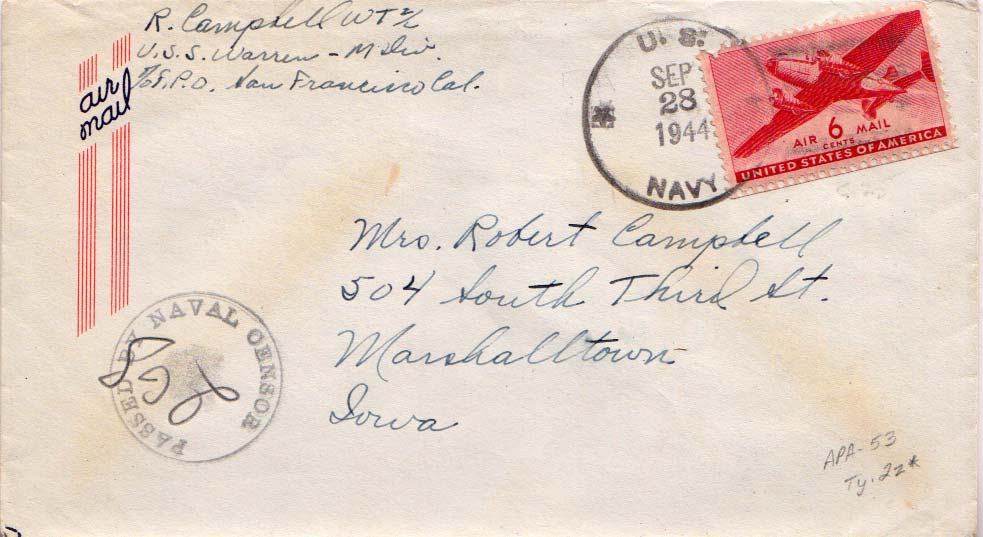 R. Campbell WT 2/c
U.S.S. Warren - M Div.
c/o F.P.O. San Francisco Cal.
air
mail
U. S.
SEP
28
1944
NAVY
AIR 6 MAIL
CENTS
UNITED STATES OF AMERICA
Mrs. Robert Campbell
504 South Third St.
Marshalltown
Iowa
PASSED BY NAVAL CENSOR
APA-53
Ty. 2z*